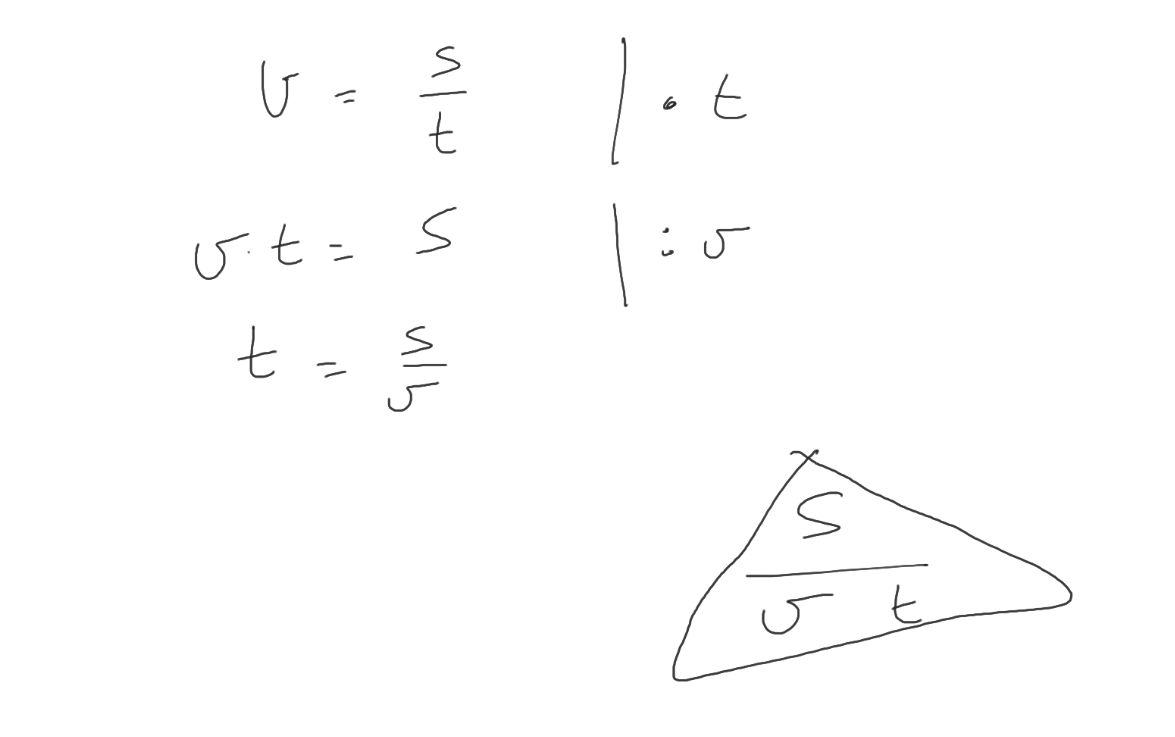 v = s/t | · t
v · t = s | : v
t = s/v
s
v t